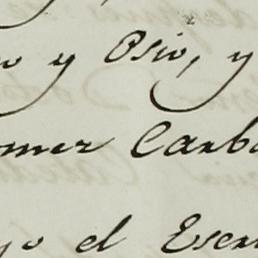 y Osio, y
omer Carb
yo el Escri